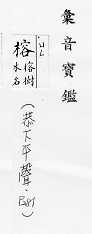 彙音寶鑑
榕
榕樹
木名
(恭下平聲·P.681)